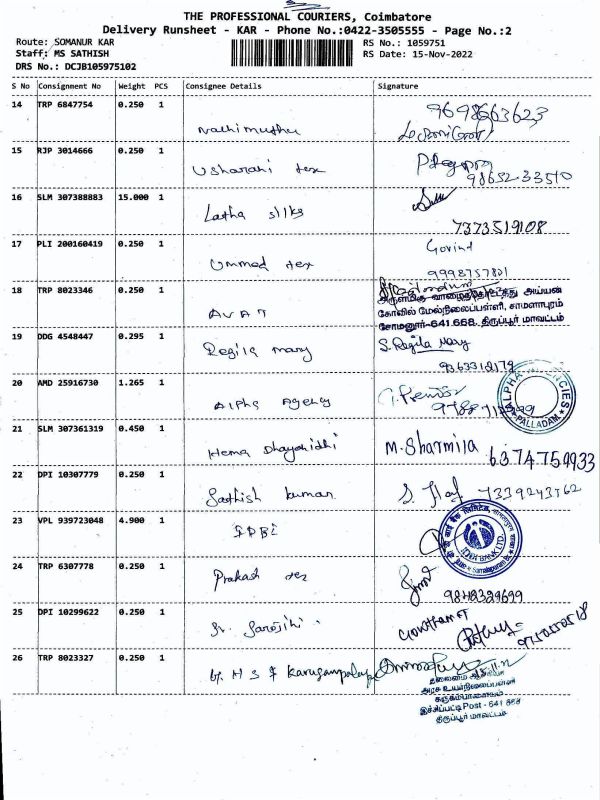 THE PROFESSIONAL COURIERS, Coimbatore
Delivery Runsheet - KAR - Phone No.:0422-3505555 - Page No.:2
Route: SOMANUR KAR
RS No.: 1059751
Staff: MS SATHISH
RS Date: 15-Nov-2022
DRS No.: DCJB105975102
S No Consignment No Weight PCS Consignee Details Signature
14 TRP 6847754 0.250 1 Nachimuthu
9698663623
15 RJP 3014666 0.250 1 Usharani tex
98652 33510
16 SLM 307388883 15.000 1 Latha silks
7373519108
17 PLI 200160419 0.250 1 Ummed tex Govind
9998757801
18 TRP 8023346 0.250 1
அருள்மிகு வாழைத்தோட்டத்து அய்யன்
கோவில் மேல்நிலைப்பள்ளி, சாமளாபுரம்
சோமனூர்-641 668. திருப்பூர் மாவட்டம்
19 DDG 4548447 0.295 1 Regila mary S. Regila Mary
9363312179
20 AMD 25916730 1.265 1 Alpha Agency
ALPHA AGENCIES
PALLADAM
21 SLM 307361319 0.450 1 Hema Dhayanidhi M. Sharmila 6374759933
22 DPI 10307779 0.250 1 Sathish kumar 7339243762
23 VPL 939723048 4.900 1 IDBI
IDBI BANK LTD.
24 TRP 6307778 0.250 1 Prakash tex
9848329699
25 DPI 10299622 0.250 1 Gowtham
26 TRP 8023327 0.250 1 H S Karugampalay
தலைமை ஆசிரியர்
அரசு உயர்நிலைப்பள்ளி
கருகம்பாளையம்
இச்சிப்பட்டி Post - 641 668
திருப்பூர் மாவட்டம்